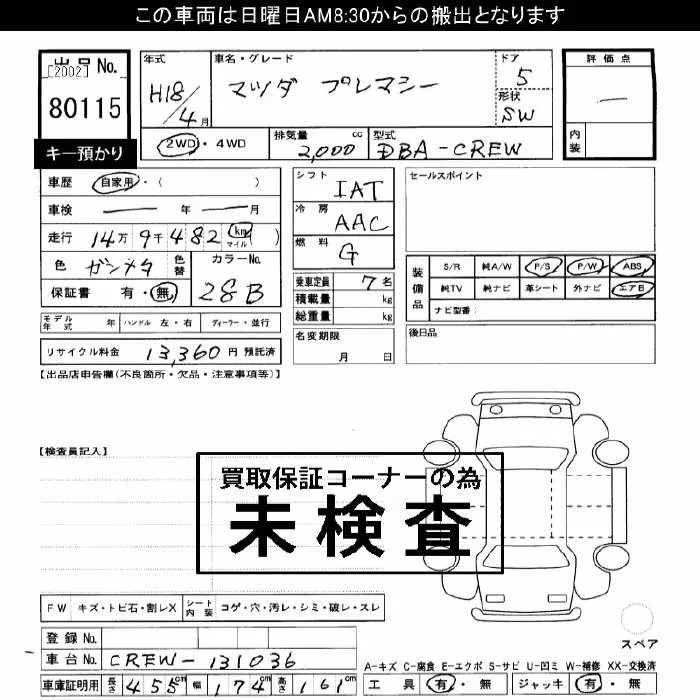 この車両は日曜日AM8:30からの搬出となります
出品No.
[2002]
80115
キー預かり
年式 H18/4月
車名・グレード マツダ プレマシー
ドア 5
形状 SW
評価点 —
内装
2WD・4WD
排気量 2,000 cc
型式 DBA-CREW
車歴 自家用・( )
車検 — 年 — 月
走行 14万9千482 (km マイル)
色 ガンメタ 色替
カラーNo. 28B
保証書 有・無
シフト IAT
冷房 AAC
燃料 G
乗車定員 7名
積載量 kg
総重量 kg
名変期限 月 日
セールスポイント
装備品
S/R 純A/W P/S P/W ABS
純TV 純ナビ 革シート 外ナビ エアB
ナビ型番:
後日品
モデル年式 年 ハンドル 左・右 ディーラー・並行
リサイクル料金 13,360 円 預託済
【出品店申告欄(不良箇所・欠品・注意事項等)】
【検査員記入】
買取保証コーナーの為
未検査
FW キズ・トビ石・割レX シート内装 コゲ・穴・汚レ・シミ・破レ・スレ
スペア
登録No.
車台No. CREW-131036
車庫証明用 長さ 455cm 幅 174cm 高さ 161cm
A-キズ C-腐食 E-エクボ S-サビ U-凹ミ W-補修 XX-交換済
工具 有・無 ジャッキ 有・無